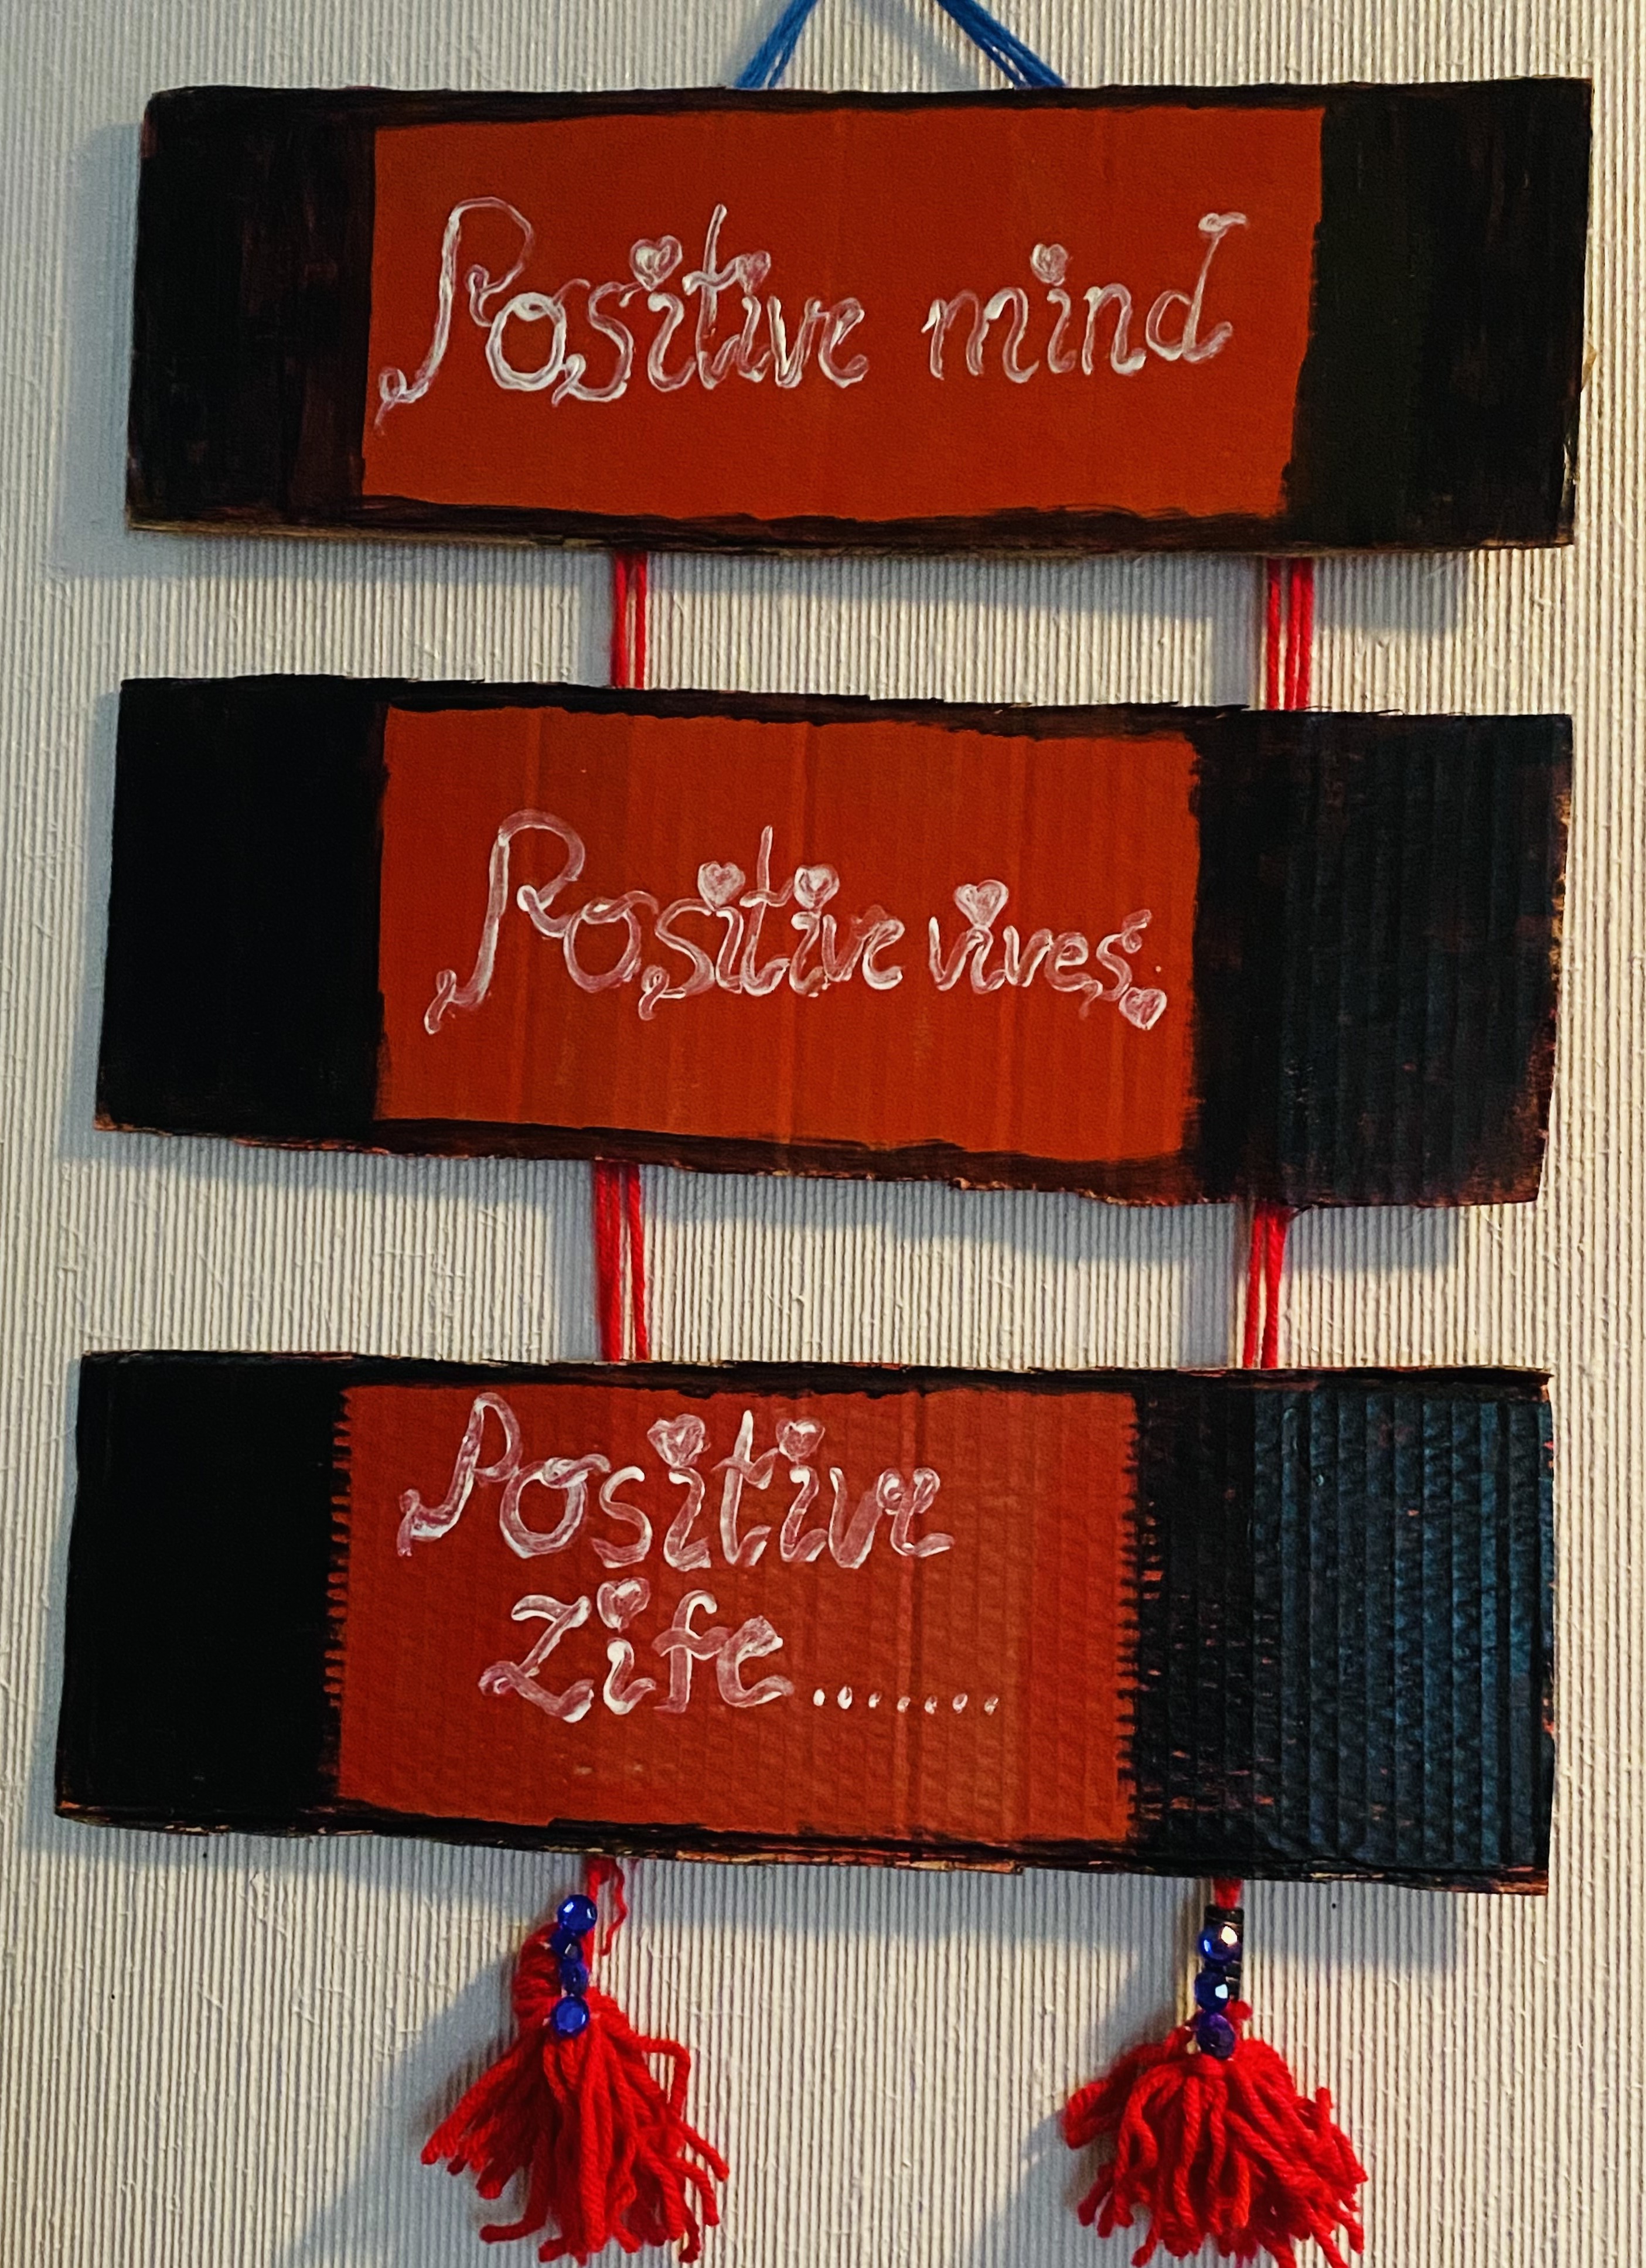 Positive mind
Positive vives.
Positive
Life........